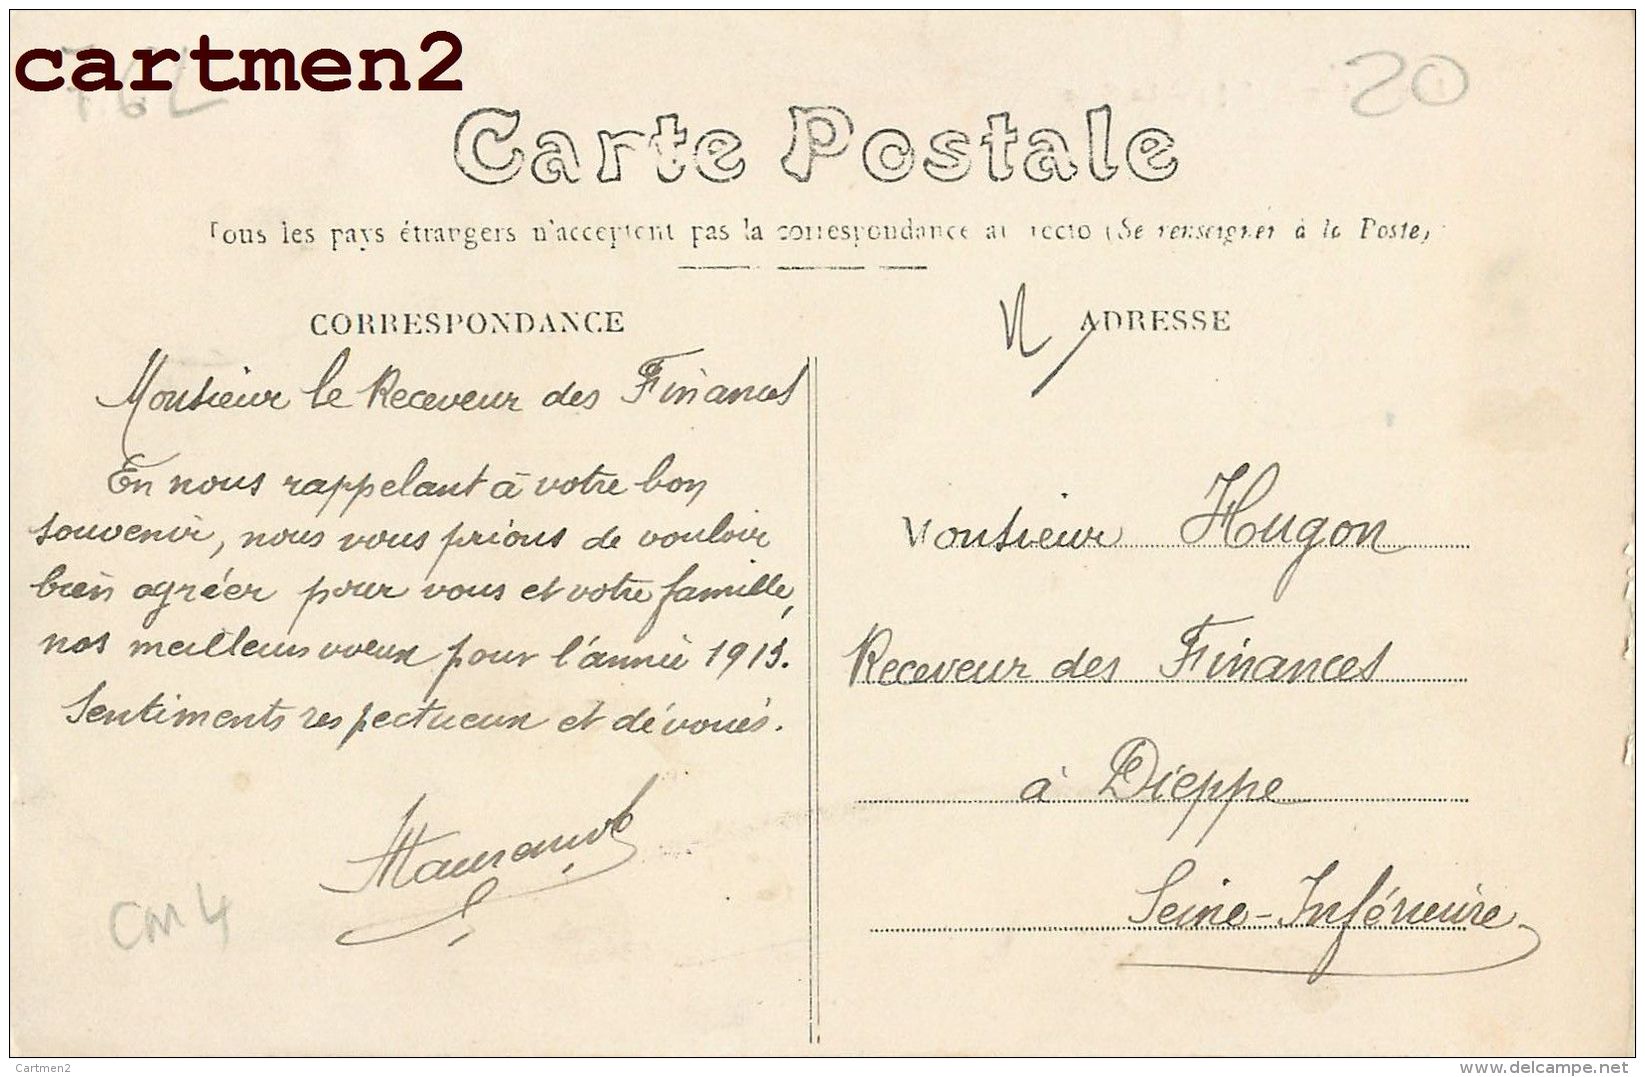 cartmen2
20
Carte Postale
Tous les pays étrangers n'acceptent pas la correspondance au recto (Se renseigner à la Poste)
CORRESPONDANCE
Monsieur le Receveur des Finances
En nous rappelant à votre bon
souvenir, nous vous prions de vouloir
bien agréer pour vous et votre famille,
nos meilleurs vœux pour l'année 1913.
Sentiments respectueux et dévoués.
CM4
ADRESSE
Monsieur Hugon
Receveur des Finances
à Dieppe
Seine-Inférieure
Cartmen2
www.delcampe.net